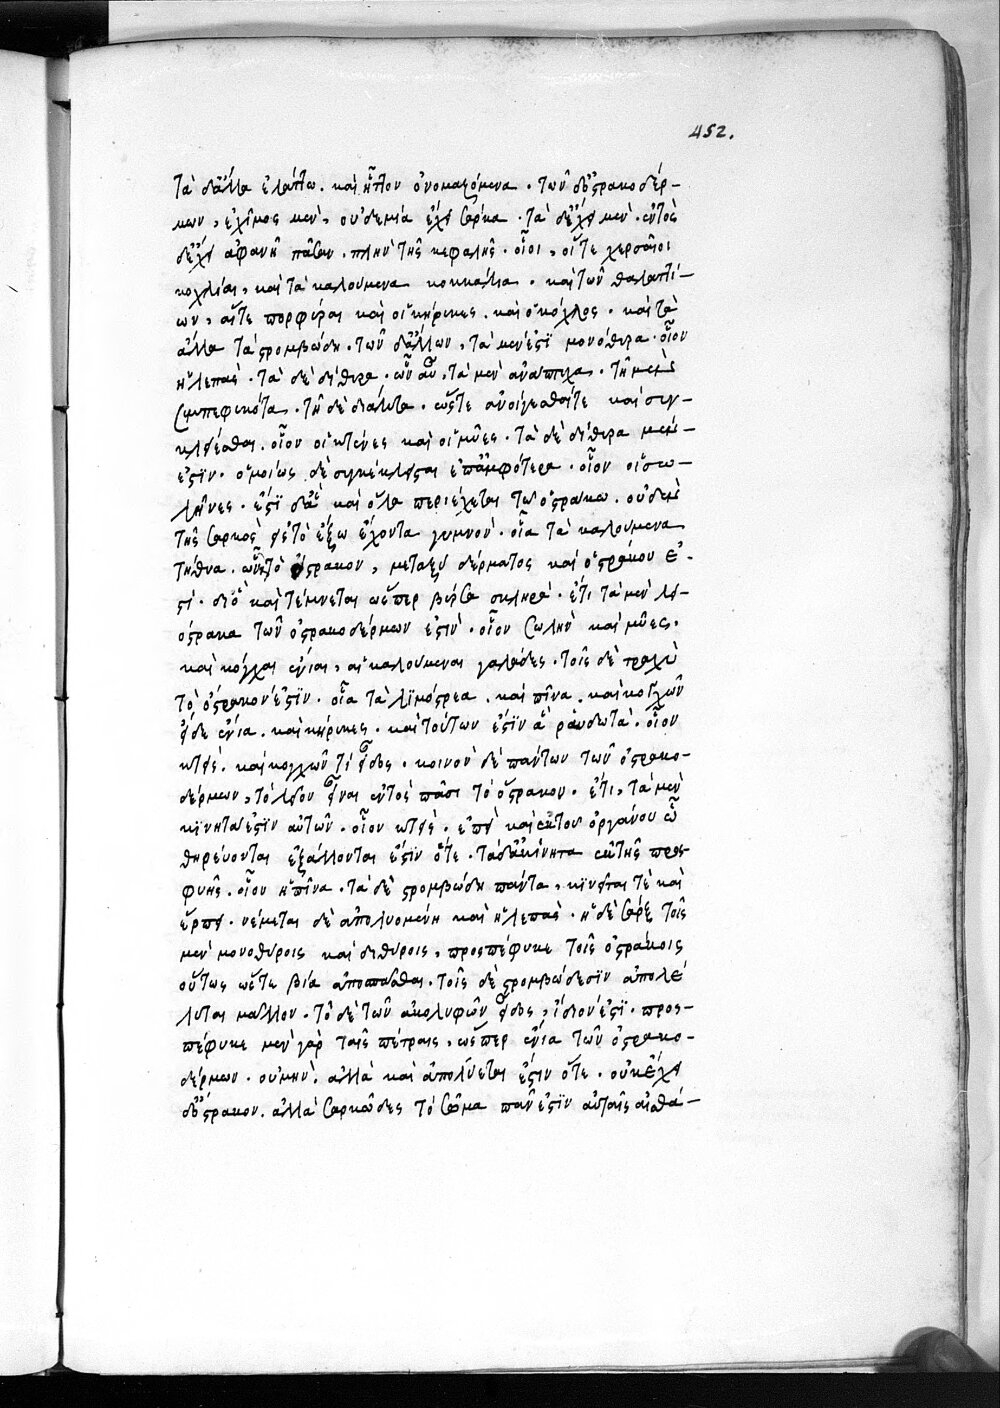 452.
τὰ δἄλλα ἐλάττω. καὶ ἧττον ὀνομαζόμενα. τῶν δὀστρακοδέρ-
μων, ἐχῖνος μὲν, οὐδεμία ἔχει σάρκα. τὰ δἔχει μὲν. ἐντὸς
δἔχει ἀφανῆ πᾶσαν. πλὴν τῆς κεφαλῆς. οἷοι, οἵτε χερσαῖοι
κοχλίαι, καὶ τὰ καλούμενα κοκκάλια. καὶ τῶν θαλαττί-
ων, αἵτε πορφύραι καὶ οἱ κήρυκες. καὶ ὁ κόχλος. καὶ τὰ
ἄλλα τὰ στρομβώδη. τῶν δἄλλων, τὰ μέν ἐστϊ μονόθυρα. οἷον
ἡ λεπάς. τὰ δὲ δίθυρα. ὧν αὖ, τὰ μὲν ἀνάπτυχα. τῆ μὲν
συμπεφυκότα. τῆ δὲ διαλυτα. ὥστε ἀνοίγεσθαίτε καὶ συγ-
κλείεσθαι. οἷον οἱ κτένες καὶ οἱ μῦες. τὰ δὲ δίθυρα μέν-
ἐστϊν. ὁμοίως δὲ συγκέκλεισται ἐπἀμφότερα. οἷον οἱ σω-
λῆνες. ἔστϊ δἃ καὶ ὅλα περιέχεται τῶ ὀστράκω. οὐδὲν
τῆς σαρκὸς εἰς τὸ ἔξω ἔχοντα γυμνὸν. οἷα τὰ καλούμενα
τήθυα. ὧν τὸ ὄστρακον, μεταξὺ δέρματος καὶ ὀστράκου ἐ-
στί. διὸ καὶ τέμνεται ὥσπερ βύρσα σκληρά. ἔτι τὰ μὲν λει-
όστρακα τῶν ὀστρακοδέρμων ἐστὶν. οἷον σωλὴν καὶ μῦες.
καὶ κόγχαι ἔνιαι, αἱ καλούμεναι γαλάδες. τοῖς δὲ τραχὺ
τὸ ὄστρακόν ἐστϊν. οἷα τὰ λϊμόστρεα. καὶ πῖνα. καὶ κογχῶν
εἴδη ἔνια. καὶ κήρυκες. καὶ τούτων ἐστϊν ἃ ῥαυδωτὰ. οἷον
κτεὶς. καὶ κογχῶν τὶ εἶδος. κοινὸν δὲ πάντων τῶν ὀστρακο-
δέρμων, τὸ λεῖον εἶναι ἐντὸς πᾶσι τὸ ὄστρακον. ἔτι, τὰ μὲν
κϊνητά ἐστϊν αὐτῶν. οἷον κτεὶς. ἐπεὶ καὶ ἐκ τοῦ ὀργάνου ὧ
θηρεύονται ἐξάλλονται ἔστϊν ὅτε. τὰ δἀκίνητα ἐκ τῆς προσ-
φυῆς. οἷον ἡ πῖνα. τὰ δὲ στρομβώδη πάντα, κϊνεῖται τὲ καὶ
ἕρπει. νέμεται δὲ ἀπολυομένη καὶ ἡ λεπάς. ἡ δὲ σὰρξ τοῖς
μὲν μονοθύροις καὶ διθύροις, προσπέφυκε τοῖς ὀστράκοις
οὕτως ὥστε βία ἀποσπᾶσθαι. τοῖς δὲ στρομβώδεσϊν ἀπολέ
λυται μᾶλλον. τὸ δὲ τῶν ἀκαλυφῶν εἶδος, ἴδιόν ἐστϊ. προσ-
πέφυκε μὲν γὰρ ταῖς πέτραις, ὥσπερ ἔνια τῶν ὀστρακο-
δέρμων. οὐ μὴν. ἀλλὰ καὶ ἀπολύεται ἔστιν ὅτε. οὐκ ἔχει
δὄστρακον. ἀλλὰ σαρκῶδες τὸ σῶμα πᾶν ἐστϊν αὐταῖς αἰσθά-